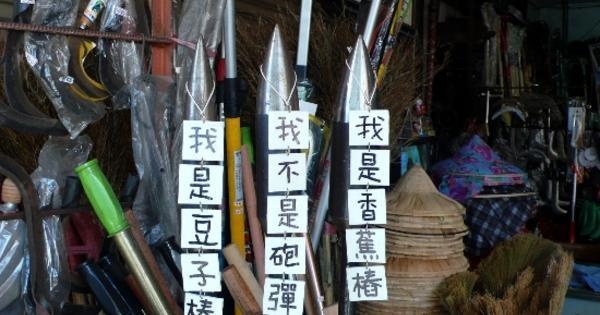 我是豆子樁
我不是砲彈
我是香蕉樁